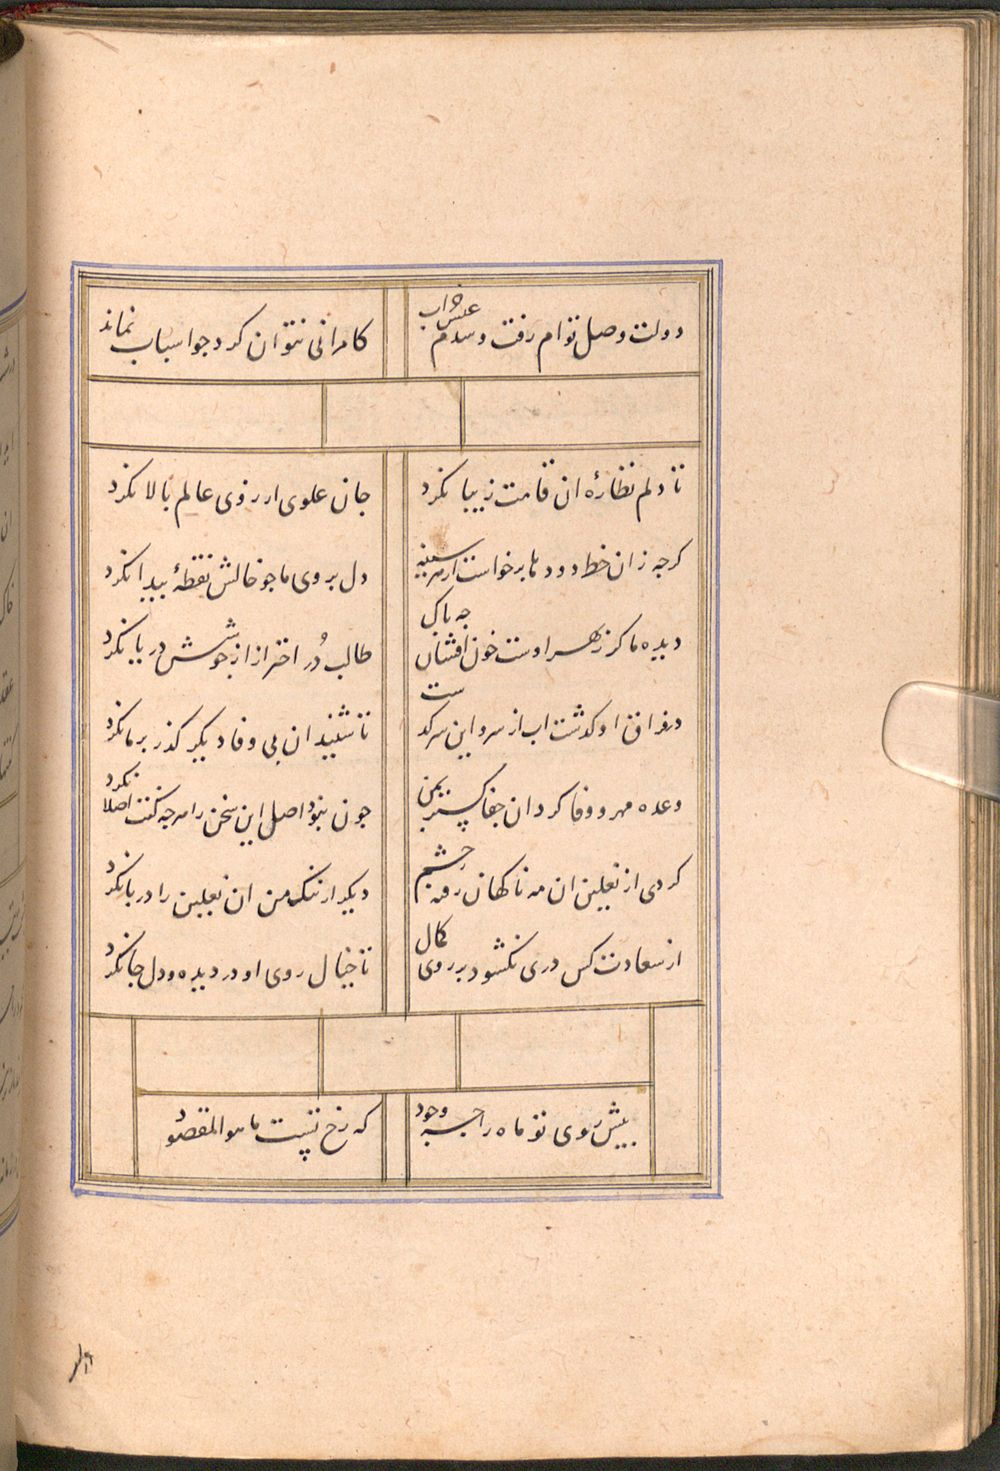 دولت وصل توام رفت و شدم عیش خراب
کامرانی نتوان کرد جو اسباب نماند
تا دلم نظارهٔ ان قامت زیبا نکرد
جان علوی ارزوی عالم بالا نکرد
کرجه زان خط دودها برخواست از هر سینهٔ
دل بروی ما جو خالش نقطهٔ پیدا نکرد
دیده ما کر زهر اوست خون افشان جه باک
طالب دُر احتراز از جوشش دریا نکرد
در فراق او کذشت اب از سر و این سرکذشت
تا شنید ان بی وفا دیکر کذر بر ما نکرد
وعده مهر و وفا کرد ان جفا کستر بمن
جون نبود اصلی این سخن را هرجه کفت اصلا نکرد
کردی از نعلین ان مه ناکهان رفتم بچشم
دیکر از ننک من ان نعلین را در پا نکرد
از سعادت کس دری نکشود بر روی کمال
تا خیال روی او در دیده و دل جا نکرد
پیش روی تو ماه را جه وجود
که رخ تست ما هو المقصود